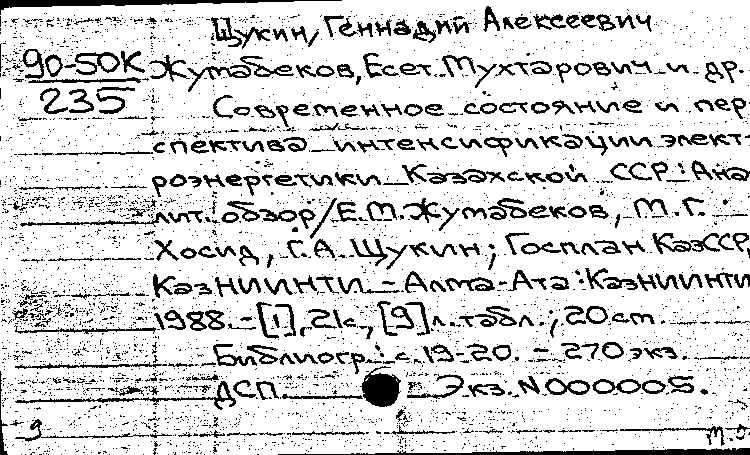 Щукин, Геннадий Алексеевич
90-50К Жумабеков, Есет Мухтарович и др.
235
Современное состояние и пер
спектива интенсификации элект-
роэнергетики Казахской ССР: Ана
лит. обзор/Е.М.Жумабеков, М.Г.
Хосид, Г.А. Щукин; Госплан КазССР,
КазНИИНТИ - Алма-Ата: КазНИИНТИ
1988. - [1], 21с., [9]л. табл.; 20см.
Библиогр.: с. 19-20. - 270 экз.
ДСП. Экз. N000005.
9